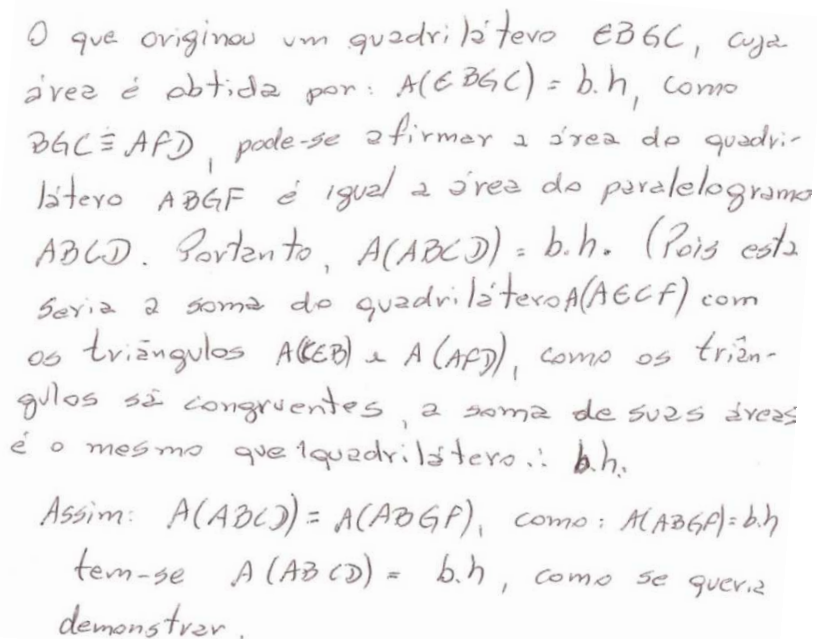 O que originou um quadrilátero EBGC, cuja
área é obtida por: A(EBGC) = b.h, como
BGC ≡ AFD, pode-se afirmar a área do quadri-
látero ABGF é igual a área do paralelogramo
ABCD. Portanto, A(ABCD) = b.h. (Pois esta
seria a soma do quadrilátero A(AECF) com
os triângulos A(CEB) e A(AFD), como os triân-
gulos sã congruentes, a soma de suas áreas
é o mesmo que 1 quadrilátero ∴ b.h.
Assim: A(ABCD) = A(ABGF), como: A(ABGF) = b.h
tem-se A(ABCD) = b.h, como se queria
demonstrar.